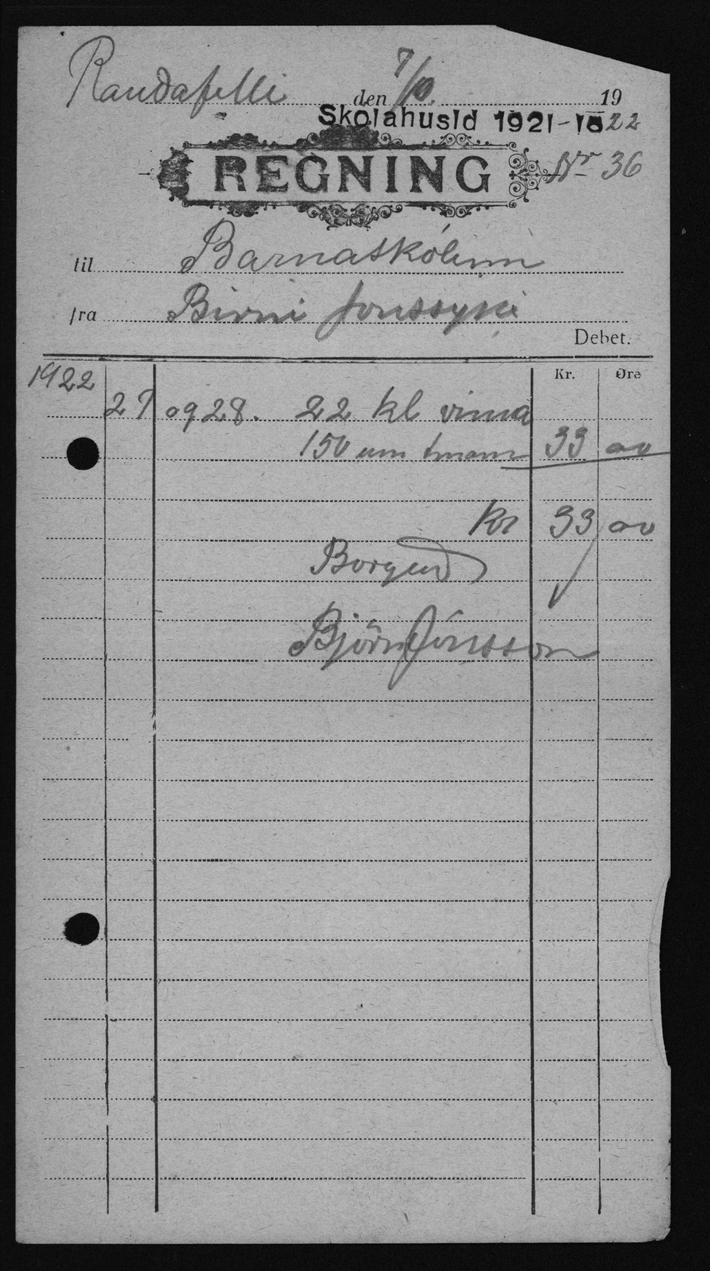 Raudafelli den 7/10. 19
Skólahúsið 1921-1822
REGNING Nr 36
til Barnaskólum
fra Birni Jonssyni
Debet.
Kr. Øre
1922
27 og 28. 22 kl vinna
150 um tímann 33 00
Kr 33 00
Borgað
Björn Jónsson